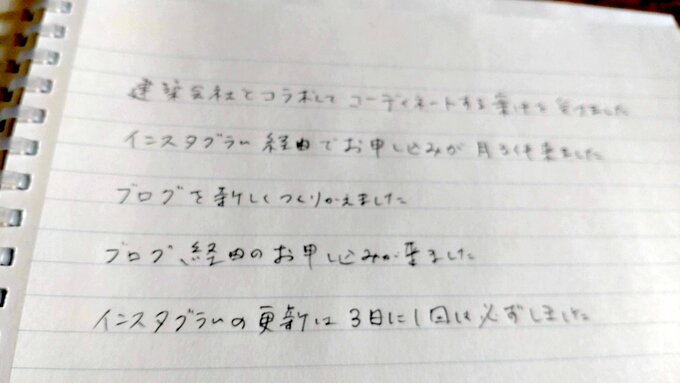 建築会社とコラボしてコーディネートする案件を受けました
インスタグラム経由でお申し込みが月5件来ました
ブログを新しくつくりかえました
ブログ経由のお申し込みが来ました
インスタグラムの更新は3日に1回は必ずしました